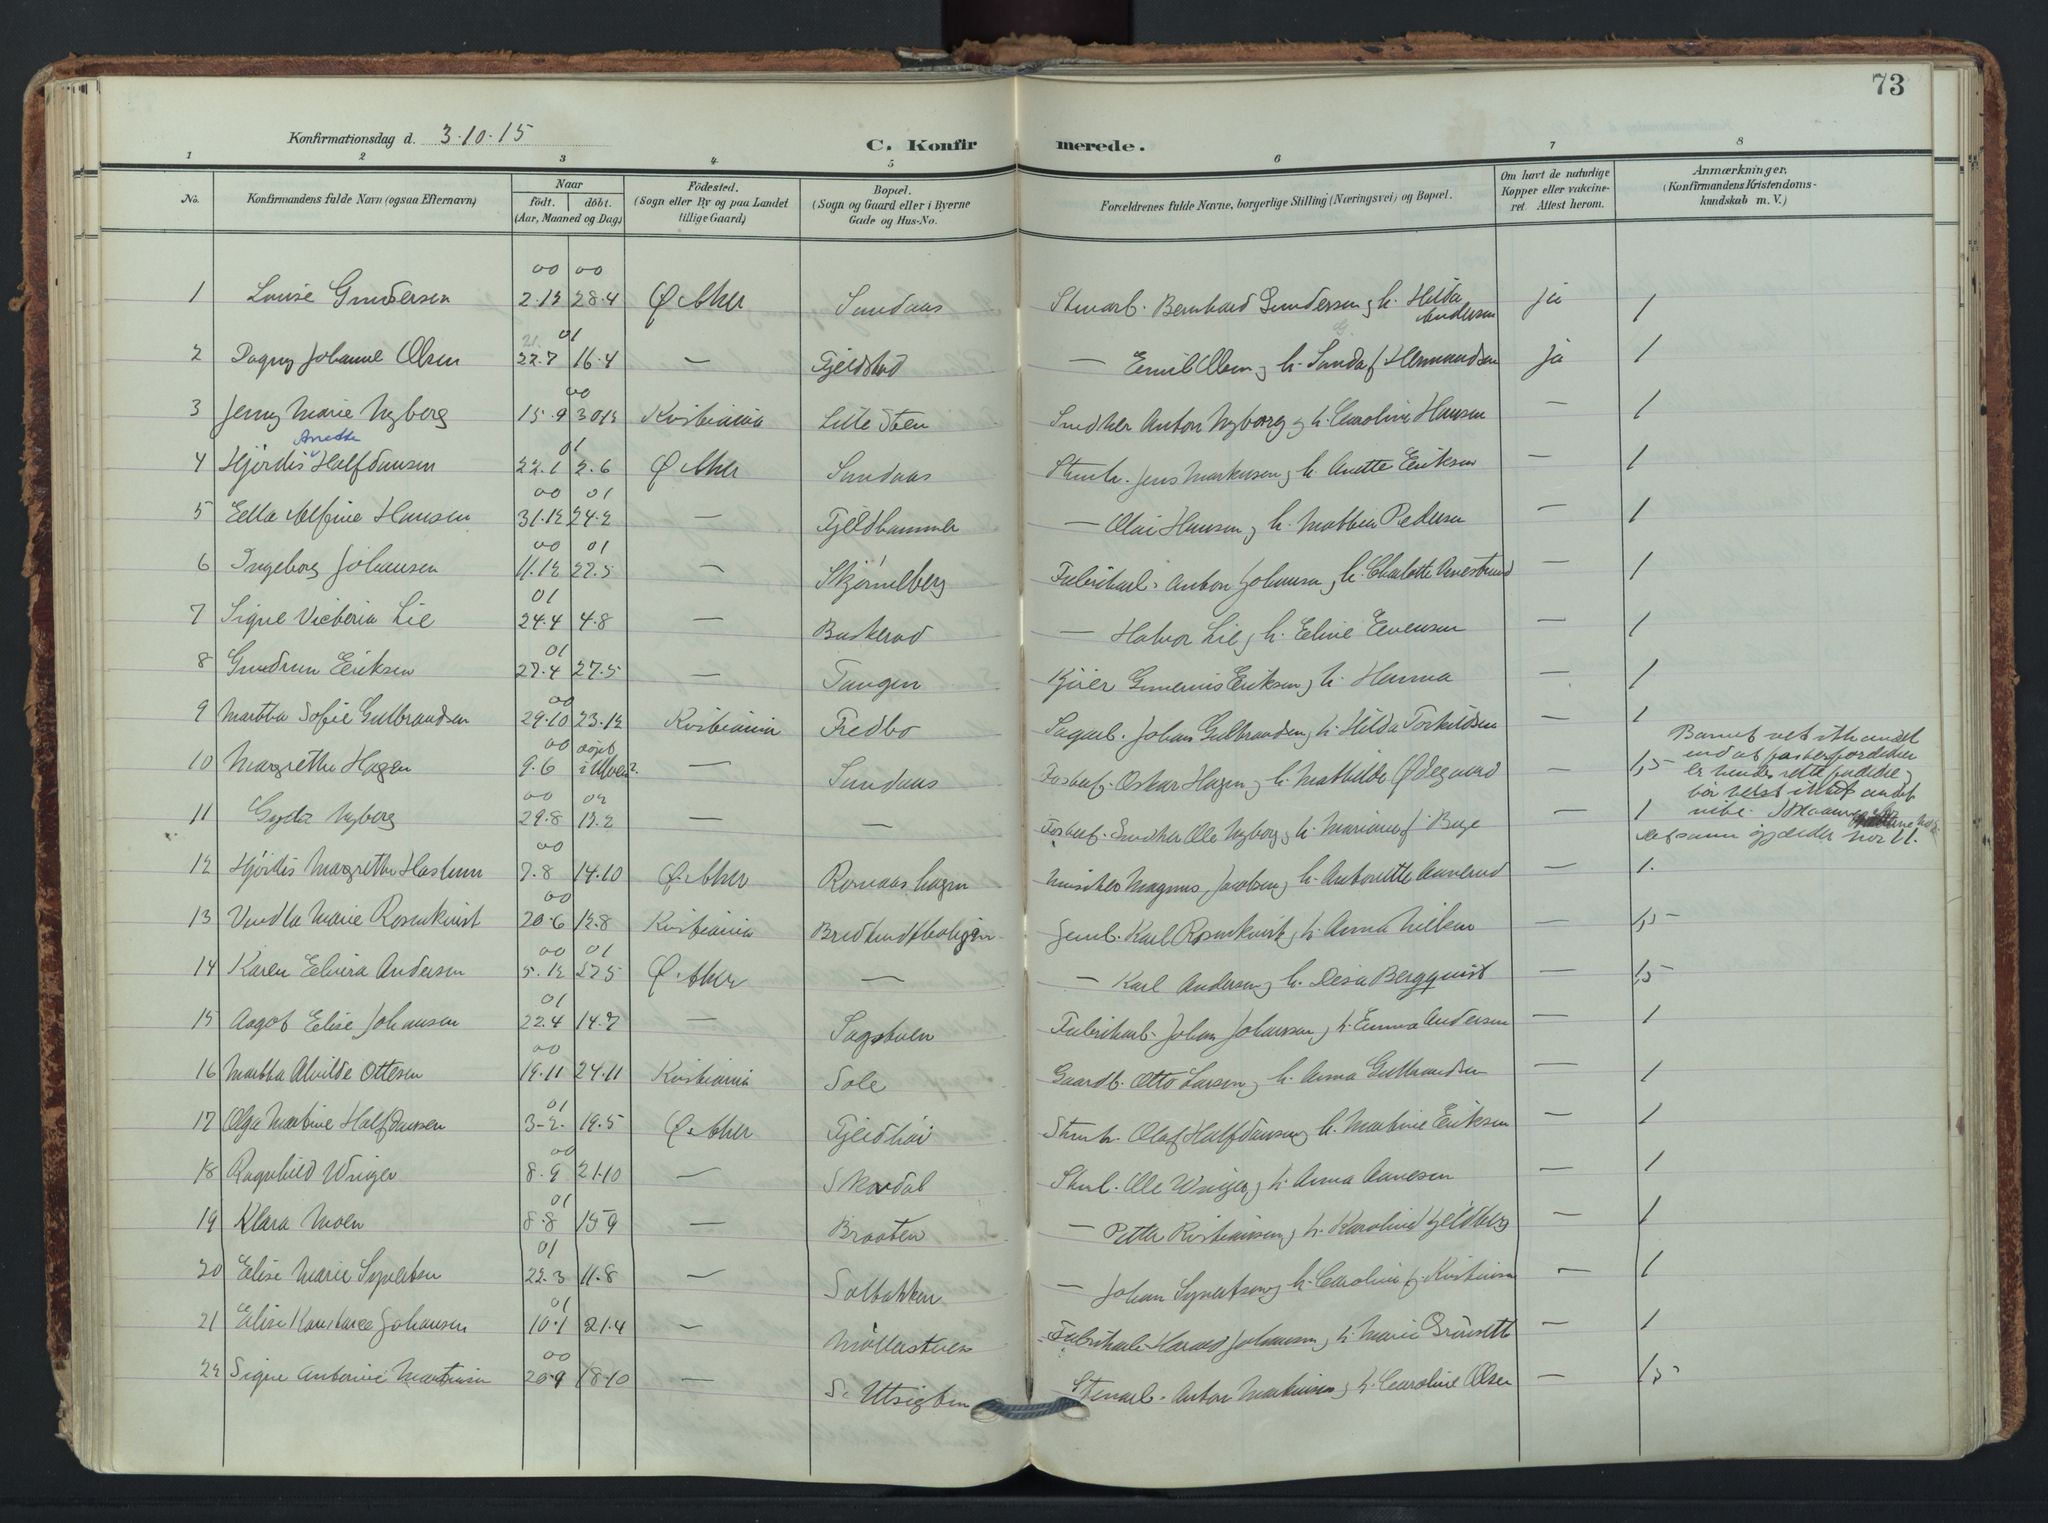 73
Konfirmationsdag d. 3.10.15
C. Konfirmerede.
1 2 3 4 5 6 7 8
No. Konfirmandens fulde Navn (ogsaa Efternavn) Naar født. døbt. (Aar, Maaned og Dag) Fødested. (Sogn eller By og paa Landet tillige Gaard) Bopæl. (Sogn og Gaard eller i Byerne Gade og Hus-No. Forældrenes fulde Navne, borgerlige Stilling (Næringsvei) og Bopæl. Om havt de naturlige Kopper eller vakcineret. Attest herom. Anmærkninger. (Konfirmandens Kristendomskundskab m. V.)
00 00
1 Louise Gundersen 2.12 28.4 Ø. Aker Sundaas Stenarb. Bernhard Gundersen og h. Hilda Andersen ja 1
01
2 Dagny Johanne Olsen 22.7 16.4 — Fjeldstad — Emil Olsen og h. Hermandsen ja 1
00
3 Jenny Marie Nyborg 15.9 30.12 Kristiania Lille Steen Snedker Anton Nyborg og h. Caroline Hansen — 1
Anette
01
4 Hjørdis Halfdansen 22.1 2.6 Ø. Aker Sundaas Stenh. Jens Markussen og h. Anette Eriksen — 1
00 01
5 Ella Alfine Hansen 31.12 24.2 — Fjeldhammer — Olai Hansen og h. Mathea Pedersen — 1
00 01
6 Ingeborg Johansen 11.12 27.5 — Skjønnelberg Fabrikarb. Anton Johansen og h. Charlotte — 1
01
7 Signe Victoria Lie 24.4 4.8 — Buskerud — Halvor Lie og h. Eline Evensen — 1
01
8 Gundrun Eriksen 27.4 27.5 — Tangen Kjører Eriksen og h. Hanna — 1
00
9 Martha Sofie Gulbrandsen 29.10 23.12 Kristiania Fredbo Sagarb. Johan Gulbrandsen og h. Hilda Torkildsen — 1
00 døpt
10 Margrethe Hagen 9.6 — Sundaas Fosterf. Oskar Hagen og h. Mathilde Ødegaard — 1,5 Barnet vet ikke andet end at fosterforældre er hendes rette forældre og bør helst ikke andet vite.
00 02
11 Gyda Nyborg 29.8 13.2 — — Fosterf. Snedker Ole Nyborg og h. — 1 Det samme gjælder No 11.
00
12 Hjørdis Margrethe Haslum 7.8 14.10 Ø. Aker Romaas hagen Musiker Magnus Jacobsen og h. Antonette Aamrud — 1.
00
13 Vendla Marie Rosenkvist 20.6 12.8 Kristiania Jernb. Karl Rosenkvist og h. Anna Nilsen — 1,5
00 01
14 Karen Elvira Andersen 5.12 27.5 Ø. Aker — — Karl Andersen og h. Desa Bergquist — 1,5
01
15 Aagot Elise Johansen 22.4 14.7 — Sagstuen Fabrikarb. Johan Johanssen og h. Emma Andersen — 1
00
16 Martha Alvilde Ottesen 19.11 24.11 Kristiania Sole Gaardb. Otto Larsen og h. Anna Gulbrandsen — 1
01
17 Olga Martine Halfdansen 3-2. 19.5 Ø. Aker Fjeldhøi Stenh. Olaf Halfdansen og h. Martine Eriksen — 1
00
18 Ragnhild Wriger 8.9 21.10 — Skovdal Stenh. Ole Wriger og h. Anna Aanesen — 1
01
19 Klara Moen 8.8 15.9 — Braaten — Petter Kristiansen og h. Karoline — 1
01
20 Elise Marie Syvertsen 22.3 11.8 — Solbakken — Johan Syvertsen og h. Caroline — 1
01
21 Elise Konstance Johansen 10.1 21.4 — Møllerstuen Fabrikarb. Harald Johansen og h. Marie — 1
00
22 Signe Antonie Martinsen 20.9 18.10 — Utsigten Stenarb. Anton Martinsen og h. Caroline Olsen — 1,5